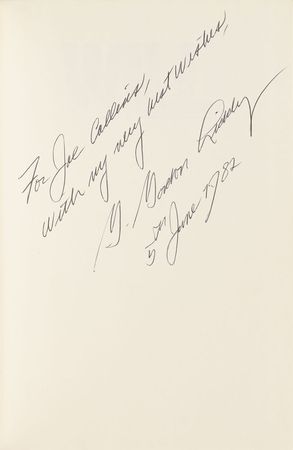 For Joe Collins,
With my very best Wishes,
G. Gordon Liddy
on
5 June 1982